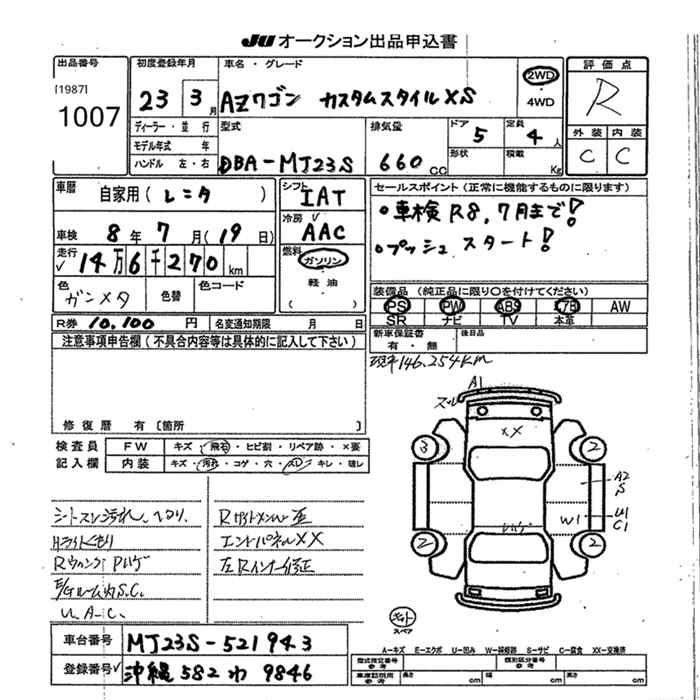 JU オークション出品申込書
出品番号
[1987]
1007
初度登録年月
23 3月
車名・グレード
AZワゴン カスタムスタイルXS
2WD
・
4WD
評価点
R
外装 内装
C C
ディーラー・並行
モデル年式 年
ハンドル 左・右
型式
DBA-MJ23S
排気量
660 CC
ドア
5
形状
定員
4 人
積載
Kg
車歴
自家用(レンタ)
車検 8年 7月(19日)
走行
√ 14万6千270 km
色
ガンメタ
色替
色コード
シフト
IAT
冷房 √
AAC
燃料
ガソリン
軽油
( )
セールスポイント(正常に機能するものに限ります)
・車検 R8,7月まで!
・プッシュ スタート!
装備品(純正品に限り○を付けてください)
PS PW ABS エアB AW
SR ナビ TV 本革
新車保証書
有・無
後日品
R券 10,100 円
名変通知期限 月 日
現車146,254km
注意事項申告欄(不具合内容等は具体的に記入して下さい)
修復歴 有〔箇所 〕
検査員
記入欄
FW キズ・飛石・ヒビ割・リペア跡・×要
内装 キズ・汚れ・コゲ・穴・スレ・キレ・破レ
シートスレ汚れ、ヘタリ、
Hライトくもり
E/Gルーム内S.C.
U.A.C.
エンドパネルXX
左Rインナー修正
A1
XX
3
2
A2
S
W1
U1
C1
2
2
キット
スペア
車台番号 MJ23S-521943
登録番号√ 沖縄 582 わ 9846
A-キズ E-エクボ U-凹み W-補修跡 S-サビ C-腐食 XX-交換済
型式指定番号
参考
類別区分番号
参考
車体寸用
参考
長さ cm
幅 cm
高さ cm